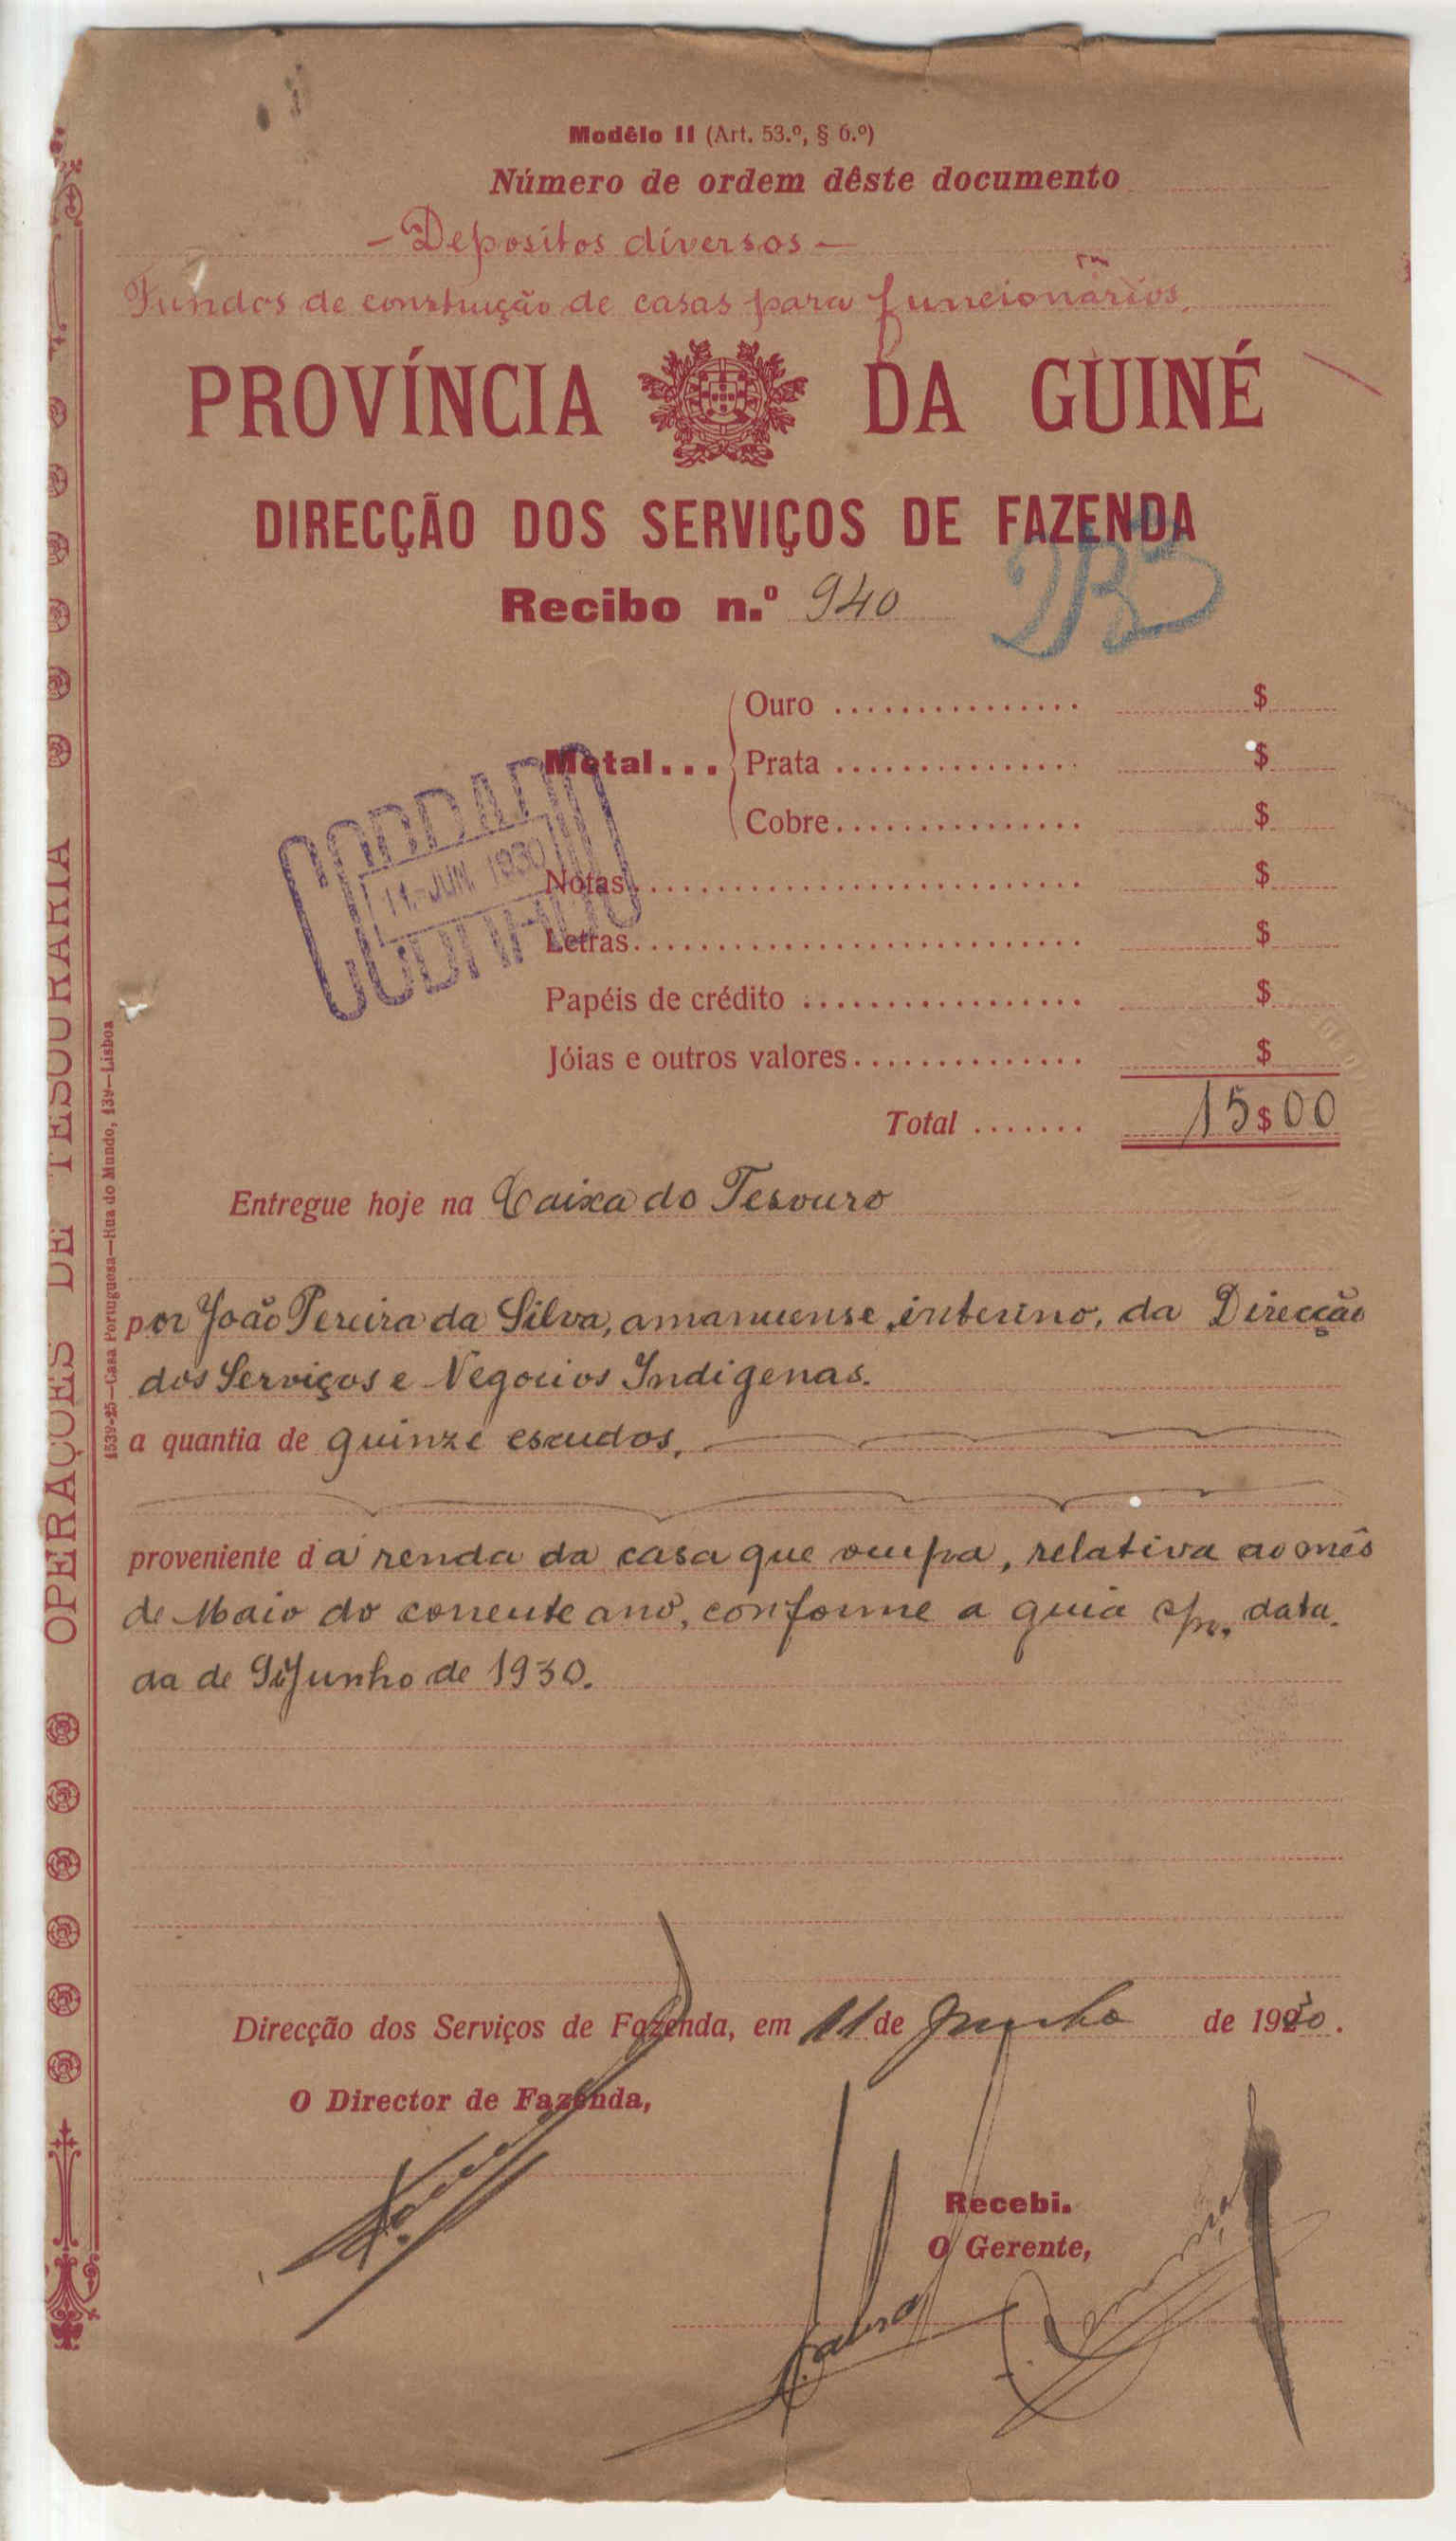 Modêlo 11 (Art. 53.º, § 6.º)
Número de ordem dêste documento
— Depositos diversos —
Fundos de construção de casas para funcionários.
PROVÍNCIA DA GUINÉ
DIRECÇÃO DOS SERVIÇOS DE FAZENDA
Recibo n.º 940
Metal... Ouro ............... $
Prata ............... $
Cobre............... $
11.-JUN. 1930
Notas........................... $
Letras........................... $
Papéis de crédito ................. $
Jóias e outros valores.............. $
Total ....... 15$00
Entregue hoje na Caixa do Tesouro
por João Pereira da Silva, amanuense, interino, da Direcção
dos Serviços e Negocios Indigenas.
a quantia de quinze escudos,
proveniente da renda da casa que ocupa, relativa ao mês
de Maio do corrente ano, conforme a guia s/n, data.
da de 9 de Junho de 1930.
Direcção dos Serviços de Fazenda, em 11 de Junho de 1930.
O Director de Fazenda,
Recebi.
O Gerente,
OPERAÇÕES DE TESOURARIA
1539-25—Casa Portuguesa—Rua do Mundo, 139—Lisboa